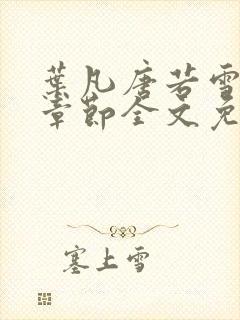 葉凡唐若雪
章節全文免
塞上雪